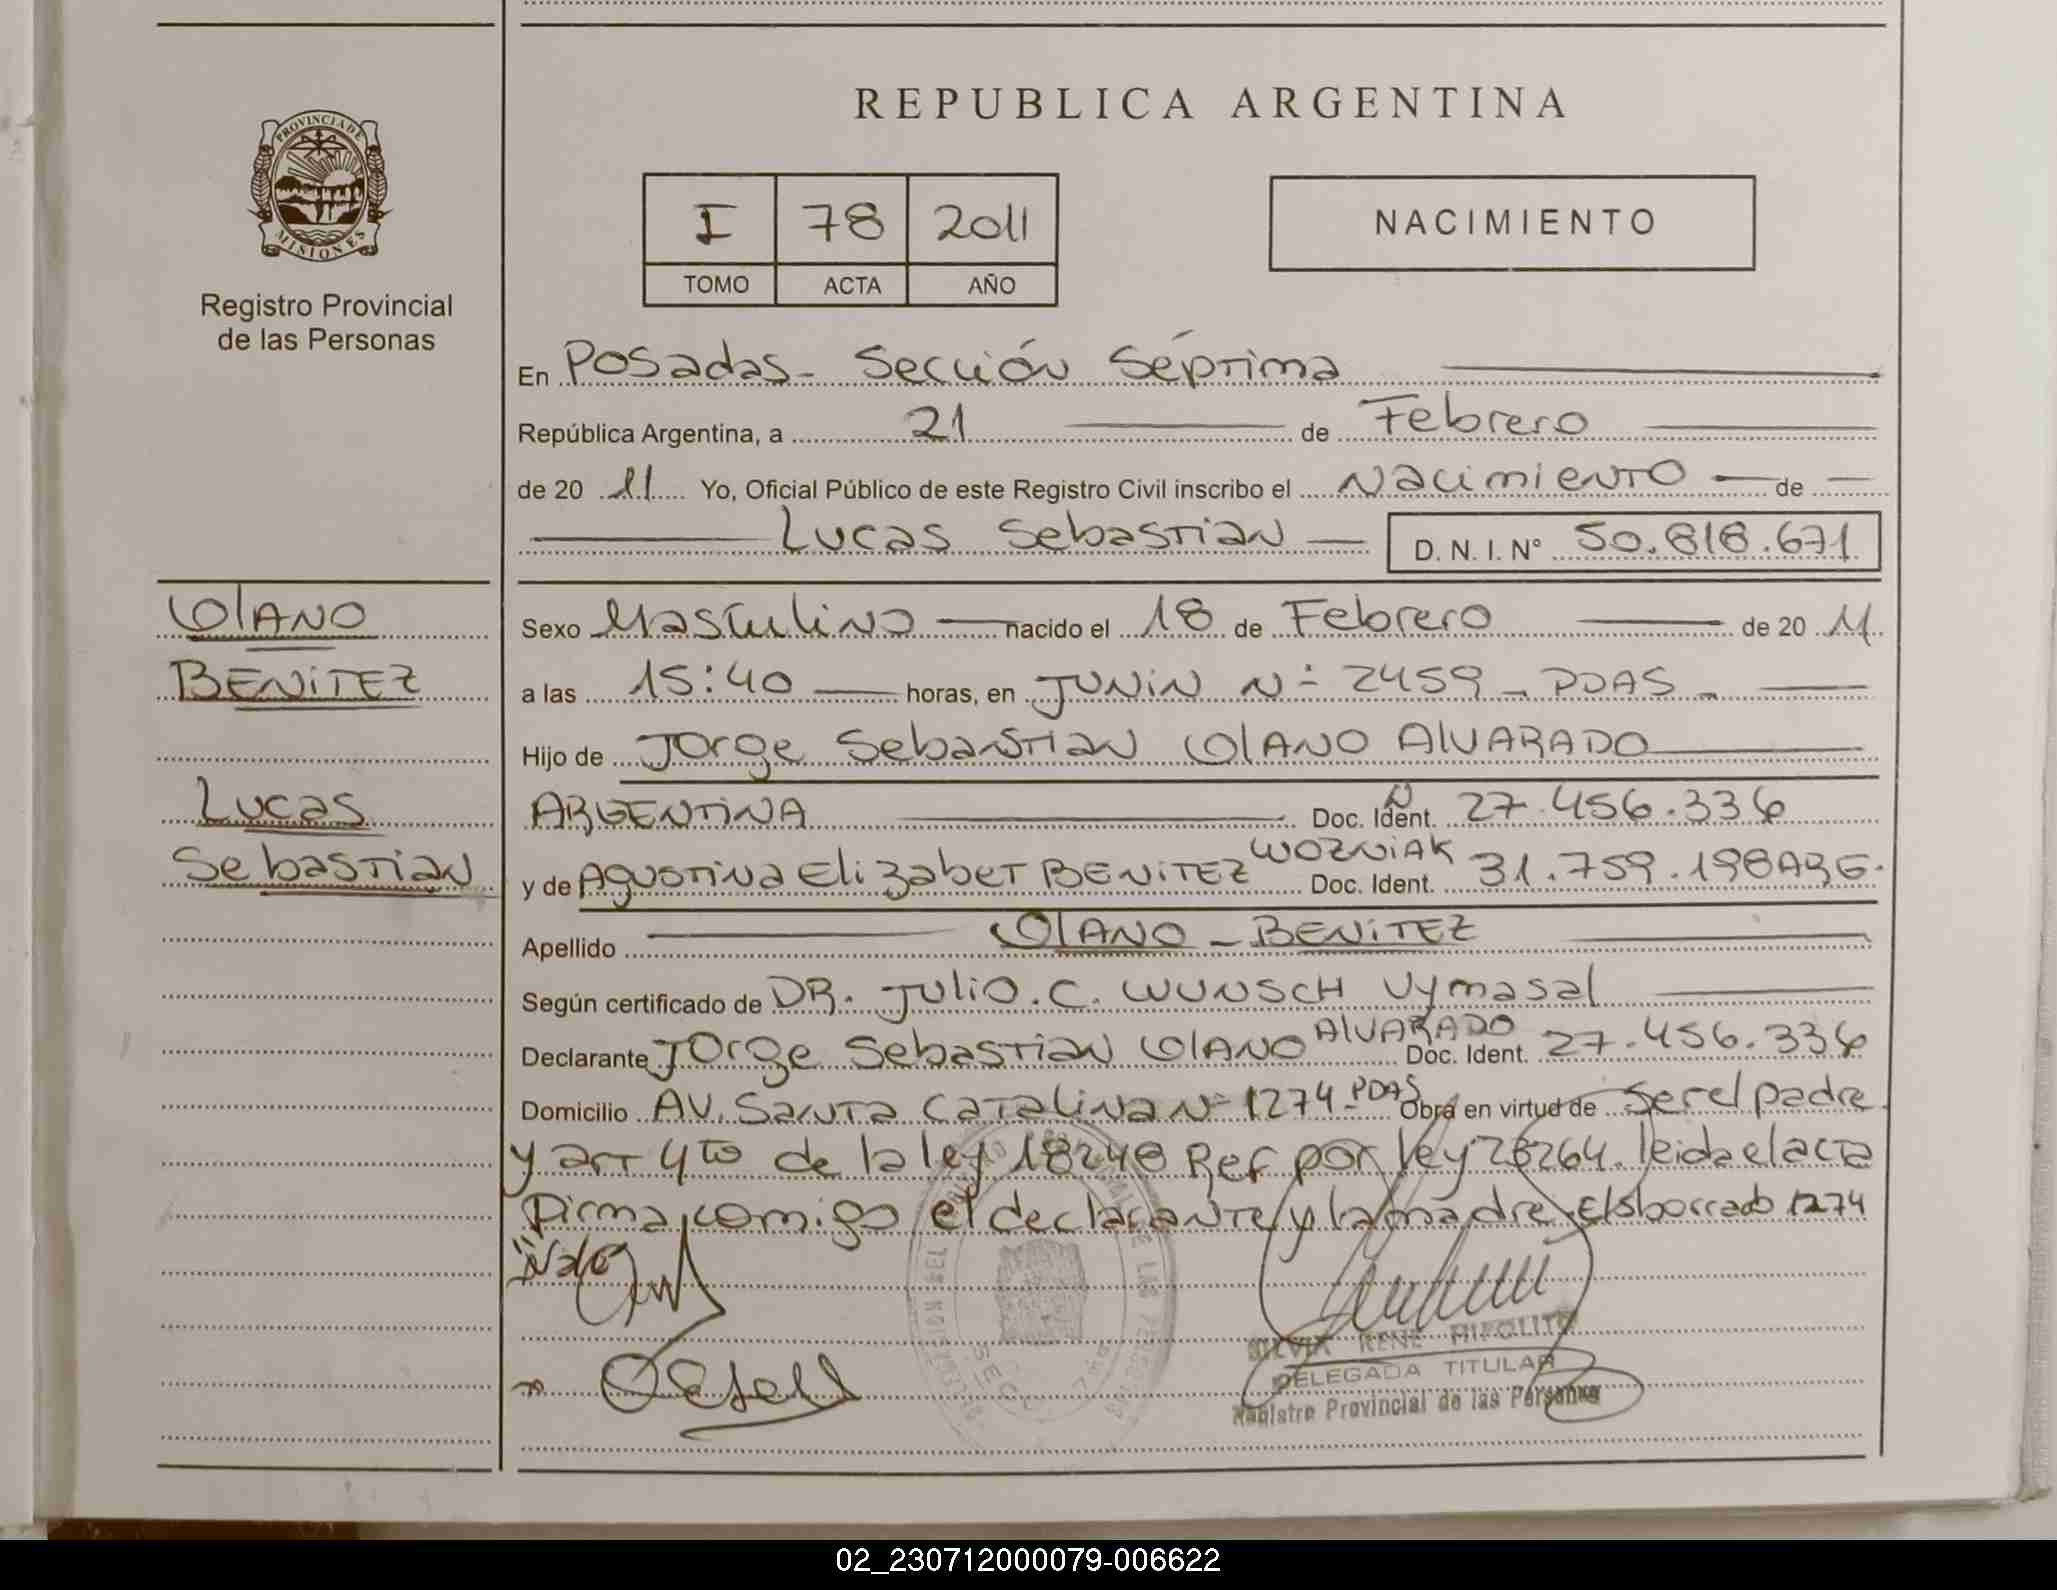 REPUBLICA ARGENTINA
PROVINCIA DE MISIONES
Registro Provincial
de las Personas
I 78 2011
TOMO ACTA AÑO
NACIMIENTO
En Posadas - Sección Séptima
República Argentina, a 21 de Febrero
de 20 11 Yo, Oficial Público de este Registro Civil inscribo el Nacimiento de
Lucas Sebastian D. N. I. N° 50.818.671
OLANO
BENITEZ
Lucas
Sebastian
Sexo Masculino nacido el 18 de Febrero de 20 11
a las 15:40 horas, en JUNIN N° 2459 - PDAS -
Hijo de Jorge Sebastian OLANO ALVARADO
ARGENTINA Doc. Ident. 27.456.336
y de Agustina Elizabet BENITEZ WOZNIAK Doc. Ident. 31.759.198 ARG.
Apellido OLANO - BENITEZ
Según certificado de DR. Julio. C. WUNSCH Vymasal
Declarante Jorge Sebastian OLANO ALVARADO Doc. Ident. 27.456.336
Domicilio AV. Santa Catalina N° 1274 - PDAS Obra en virtud de Ser el padre
y art 4to de la ley 18248 Ref por ley 26264. leida el acta
Firma comigo el declarante y la madre. Elsborrado 1274
"Vale"
SILVIA RENE HIPOLITO
DELEGADA TITULAR
Registro Provincial de las Personas
02_230712000079-006622